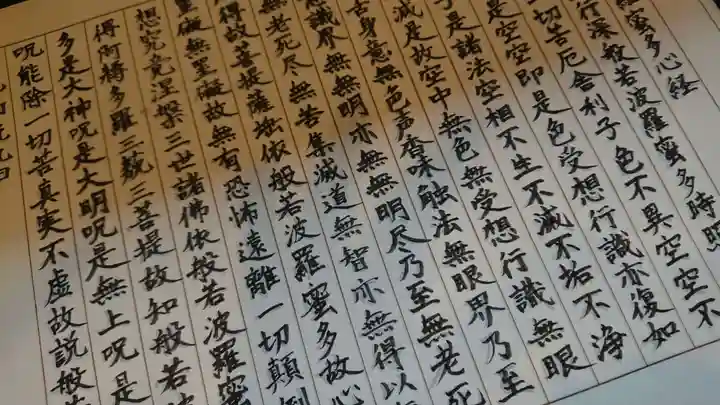 蜜多心経
行深般若波羅蜜多時照
切苦厄舎利子色不異空空不
是空空即是色受想行識亦復如
子是諸法空相不生不滅不垢不浄
滅是故空中無色無受想行識無眼
舌身意無色声香味触法無眼界乃至
意識界無無明亦無無明尽乃至無老死
無老死尽無苦集滅道無智亦無得以
得故菩提薩埵依般若波羅蜜多故心
罣礙無罣礙故無有恐怖遠離一切顛倒
想究竟涅槃三世諸佛依般若波羅蜜
得阿耨多羅三藐三菩提故知般若波
多是大神呪是大明呪是無上呪是
呪能除一切苦真実不虚故説般若